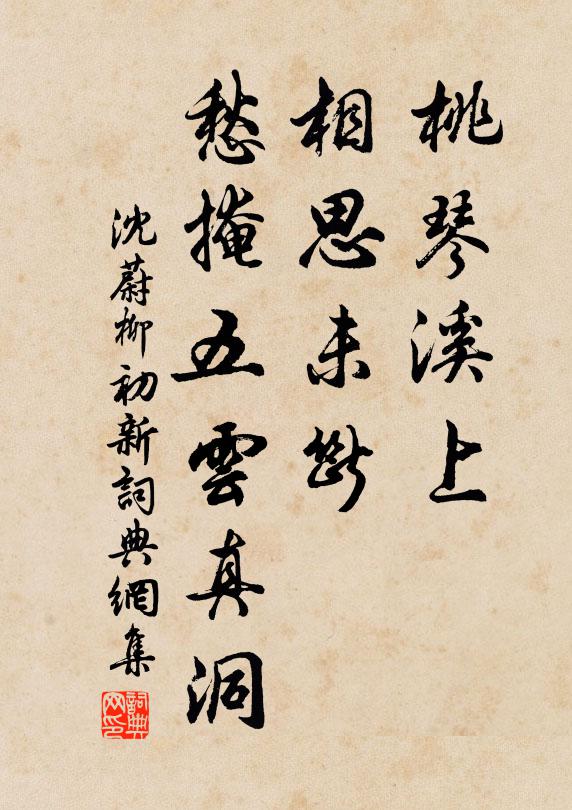 桃琴溪上
相思未斷
愁掩五雲真洞
沈蔚柳初新詞典網集
詞典网印